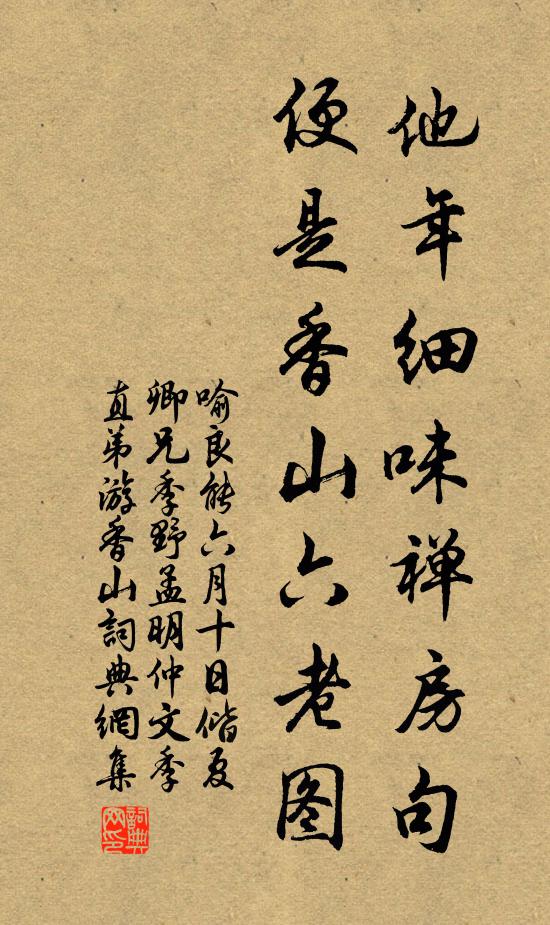 他年细味禅房句
便是香山六老图
喻良能六月十日偕夏
卿兄季野孟明仲文季
直弟游香山詞典網集
詞典
网印